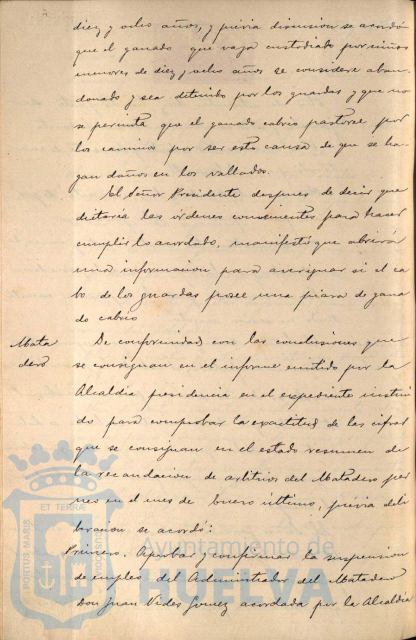 diez y ocho años, y prévia discusion se acordó
que el ganado que vaya custodiado por niños
menores de diez y ocho años se considere aban
donado y sea detenido por los guardas y que no
se permita que el ganado cabrio pastoree por
los caminos por ser esto causa de que se ha-
gan daños en los vallados.
El Señor Presidente despues de decir que
dictaria las órdenes convenientes para hacer
cumplir lo acordado, manifestó que abrirá
una informacion para averiguar si el ca
bo de los guardas posee una piara de gana
do cabrio
Mata
dero
De conformidad con las conclusiones que
se consignan en el informe emitido por la
Alcaldia presidencia en el expediente instrui
do para comprobar la exactitud de las cifras
que se consignan en el estado resumen de
la recaudacion de arbitrios del Matadero
nes en el mes de Enero último, prévia deli
beracion se acordó:
Primero. Aprobar y confirmar la suspension
de empleo del Administrador del Matadero
Don Juan Vides Gomez acordada por la Alcaldia
PORTUS MARIS
ET TERRAE
CUSTODIA
Ayuntamiento de
HUELVA